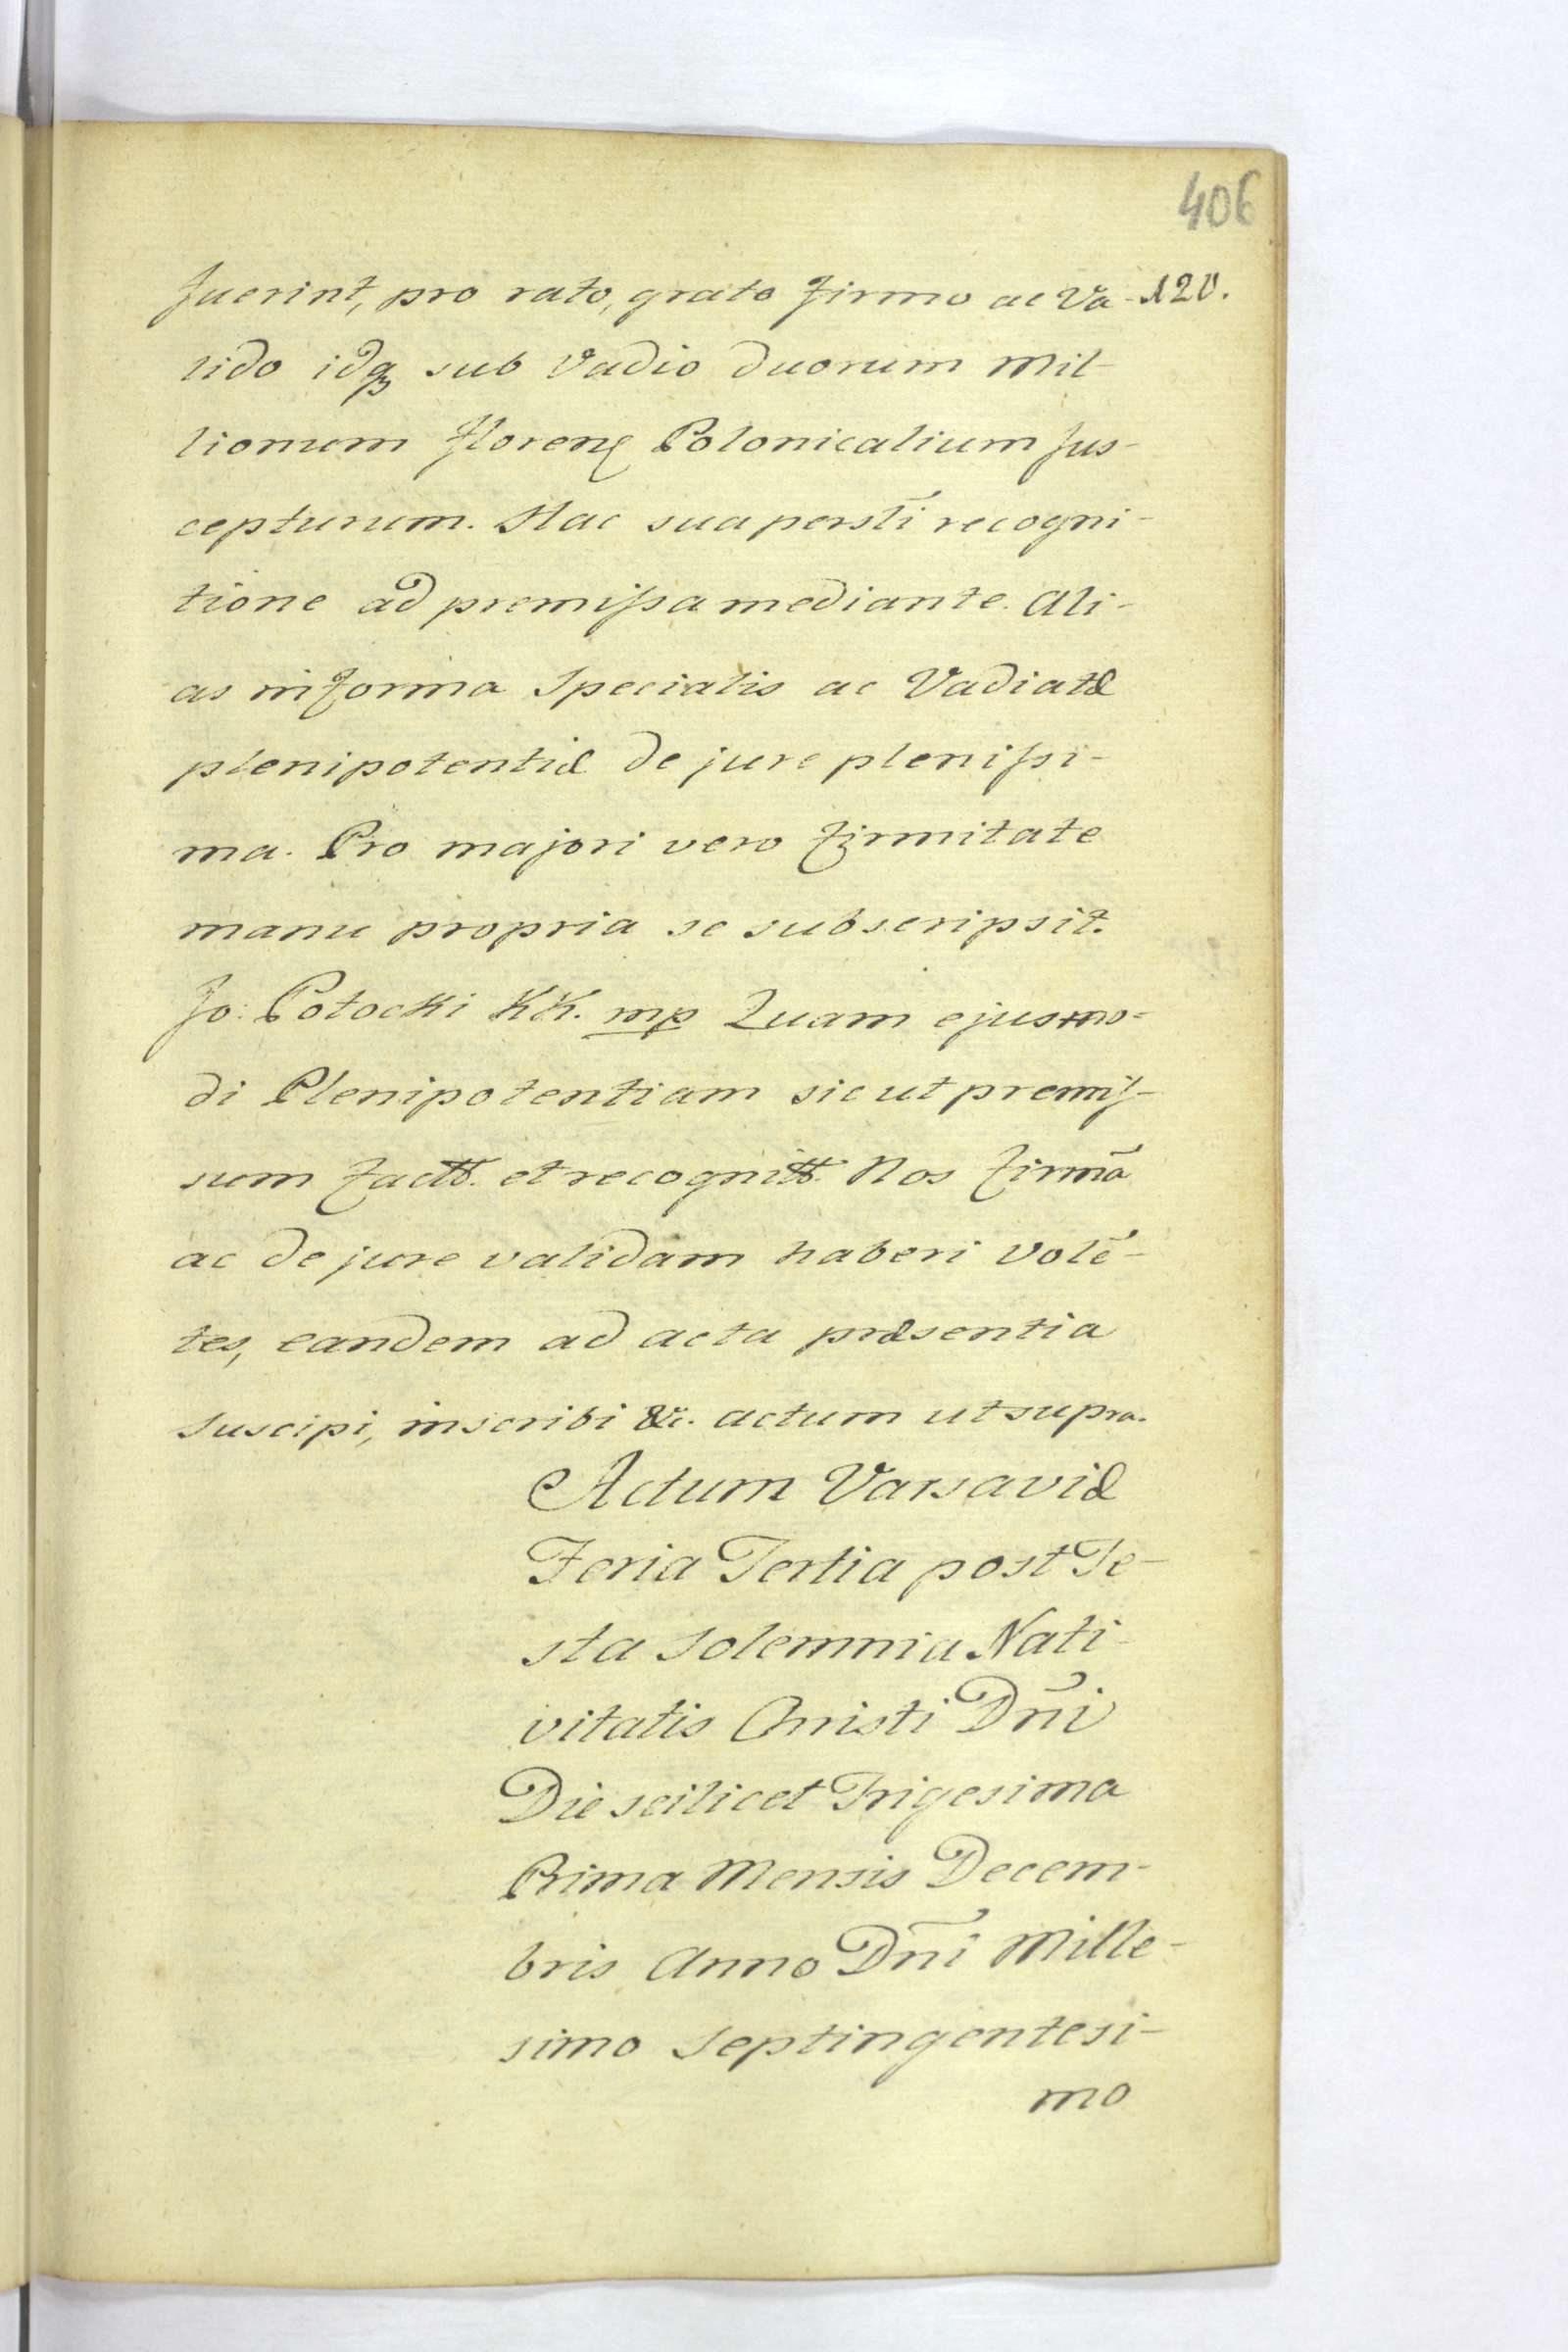 406
fuerint, pro rato, grato firmo ac Va- 120.
lido idq3 sub Vadio duorum Mil-
lionum floren Polonicalium sus-
cepturum. Hac sua perstī recogni-
tione ad premissa mediante. Ali-
as in forma specialis ac Vadiatæ
plenipotentiæ de jure plenissi-
ma. Pro majori vero firmitate
manu propria se subscripsit.
Jo: Potocki KK. mp Quam ejusmo-
di Plenipotentiam sic ut premis-
sum factt. et recognitt. Nos firmā
ac de jure validam haberi volē-
tes, eandem ad acta præsentia
suscipi, inscribi &c. actum ut supra.
Actum Varsaviæ
Feria Tertia post Fe-
sta Solemnia Nati-
vitatis Christi Dn̄i
Die scilicet Trigesima
Prima Mensis Decem-
bris Anno Dn̄i Mille-
simo Septingentesi-
mo